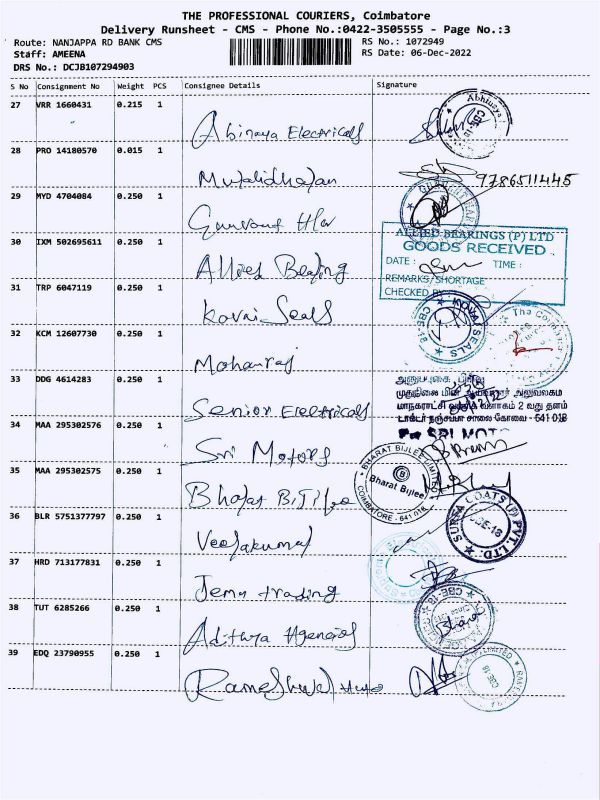 THE PROFESSIONAL COURIERS, Coimbatore
Delivery Runsheet - CMS - Phone No.:0422-3505555 - Page No.:3
Route: NANJAPPA RD BANK CMS RS No.: 1072949
Staff: AMEENA RS Date: 06-Dec-2022
DRS No.: DCJB107294903
S No Consignment No Weight PCS Consignee Details Signature
27 VRR 1660431 0.215 1
Abinaya Electricals Abhinaya
28 PRO 14180570 0.015 1
9786511445
29 MYD 4704084 0.250 1
30 IXM 502695611 0.250 1
ALLIED BEARINGS (P) LTD
GOODS RECEIVED
Allied Bearing DATE : TIME :
REMARKS/SHORTAGE
31 TRP 6047119 0.250 1 CHECKED BY
Kovai Seals KOVAI SEALS CBE-18
32 KCM 12607730 0.250 1
Mohanraj
33 DDG 4614283 0.250 1
முதுநிலை மின் ஆய்வாளர் அலுவலகம்
Senior Electricals மாநகராட்சி வணிக வளாகம் 2 வது தளம்
டாக்டர் நஞ்சப்பா சாலை கோவை - 641 018
34 MAA 295302576 0.250 1
Sri Motors
35 MAA 295302575 0.250 1
BHARAT BIJLEE LIMITED Bharat Bijlee COIMBATORE - 641 018
36 BLR 5751377797 0.250 1
Veerakumar SURYA COATS (P) PVT. LTD. CBE-18
37 HRD 713177831 0.250 1
Jem trading
38 TUT 6285266 0.250 1
Adithya Agencies
39 EDQ 23790955 0.250 1
CBE-18